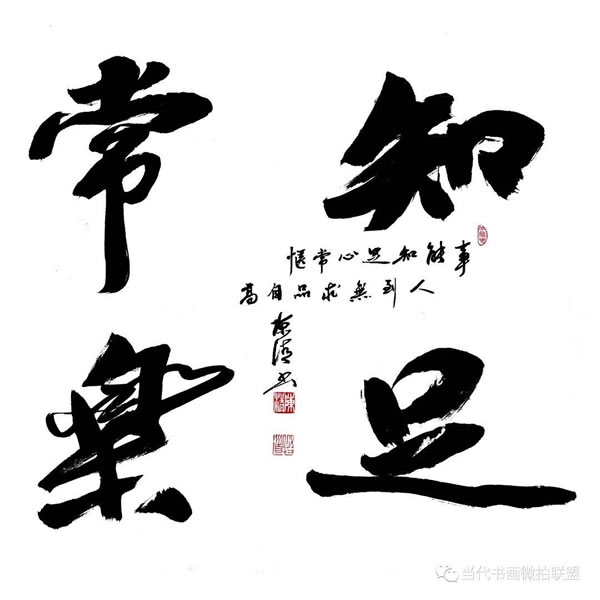 知足
常樂
事能知足心常惬
人到無求品自高
当代书画微拍联盟